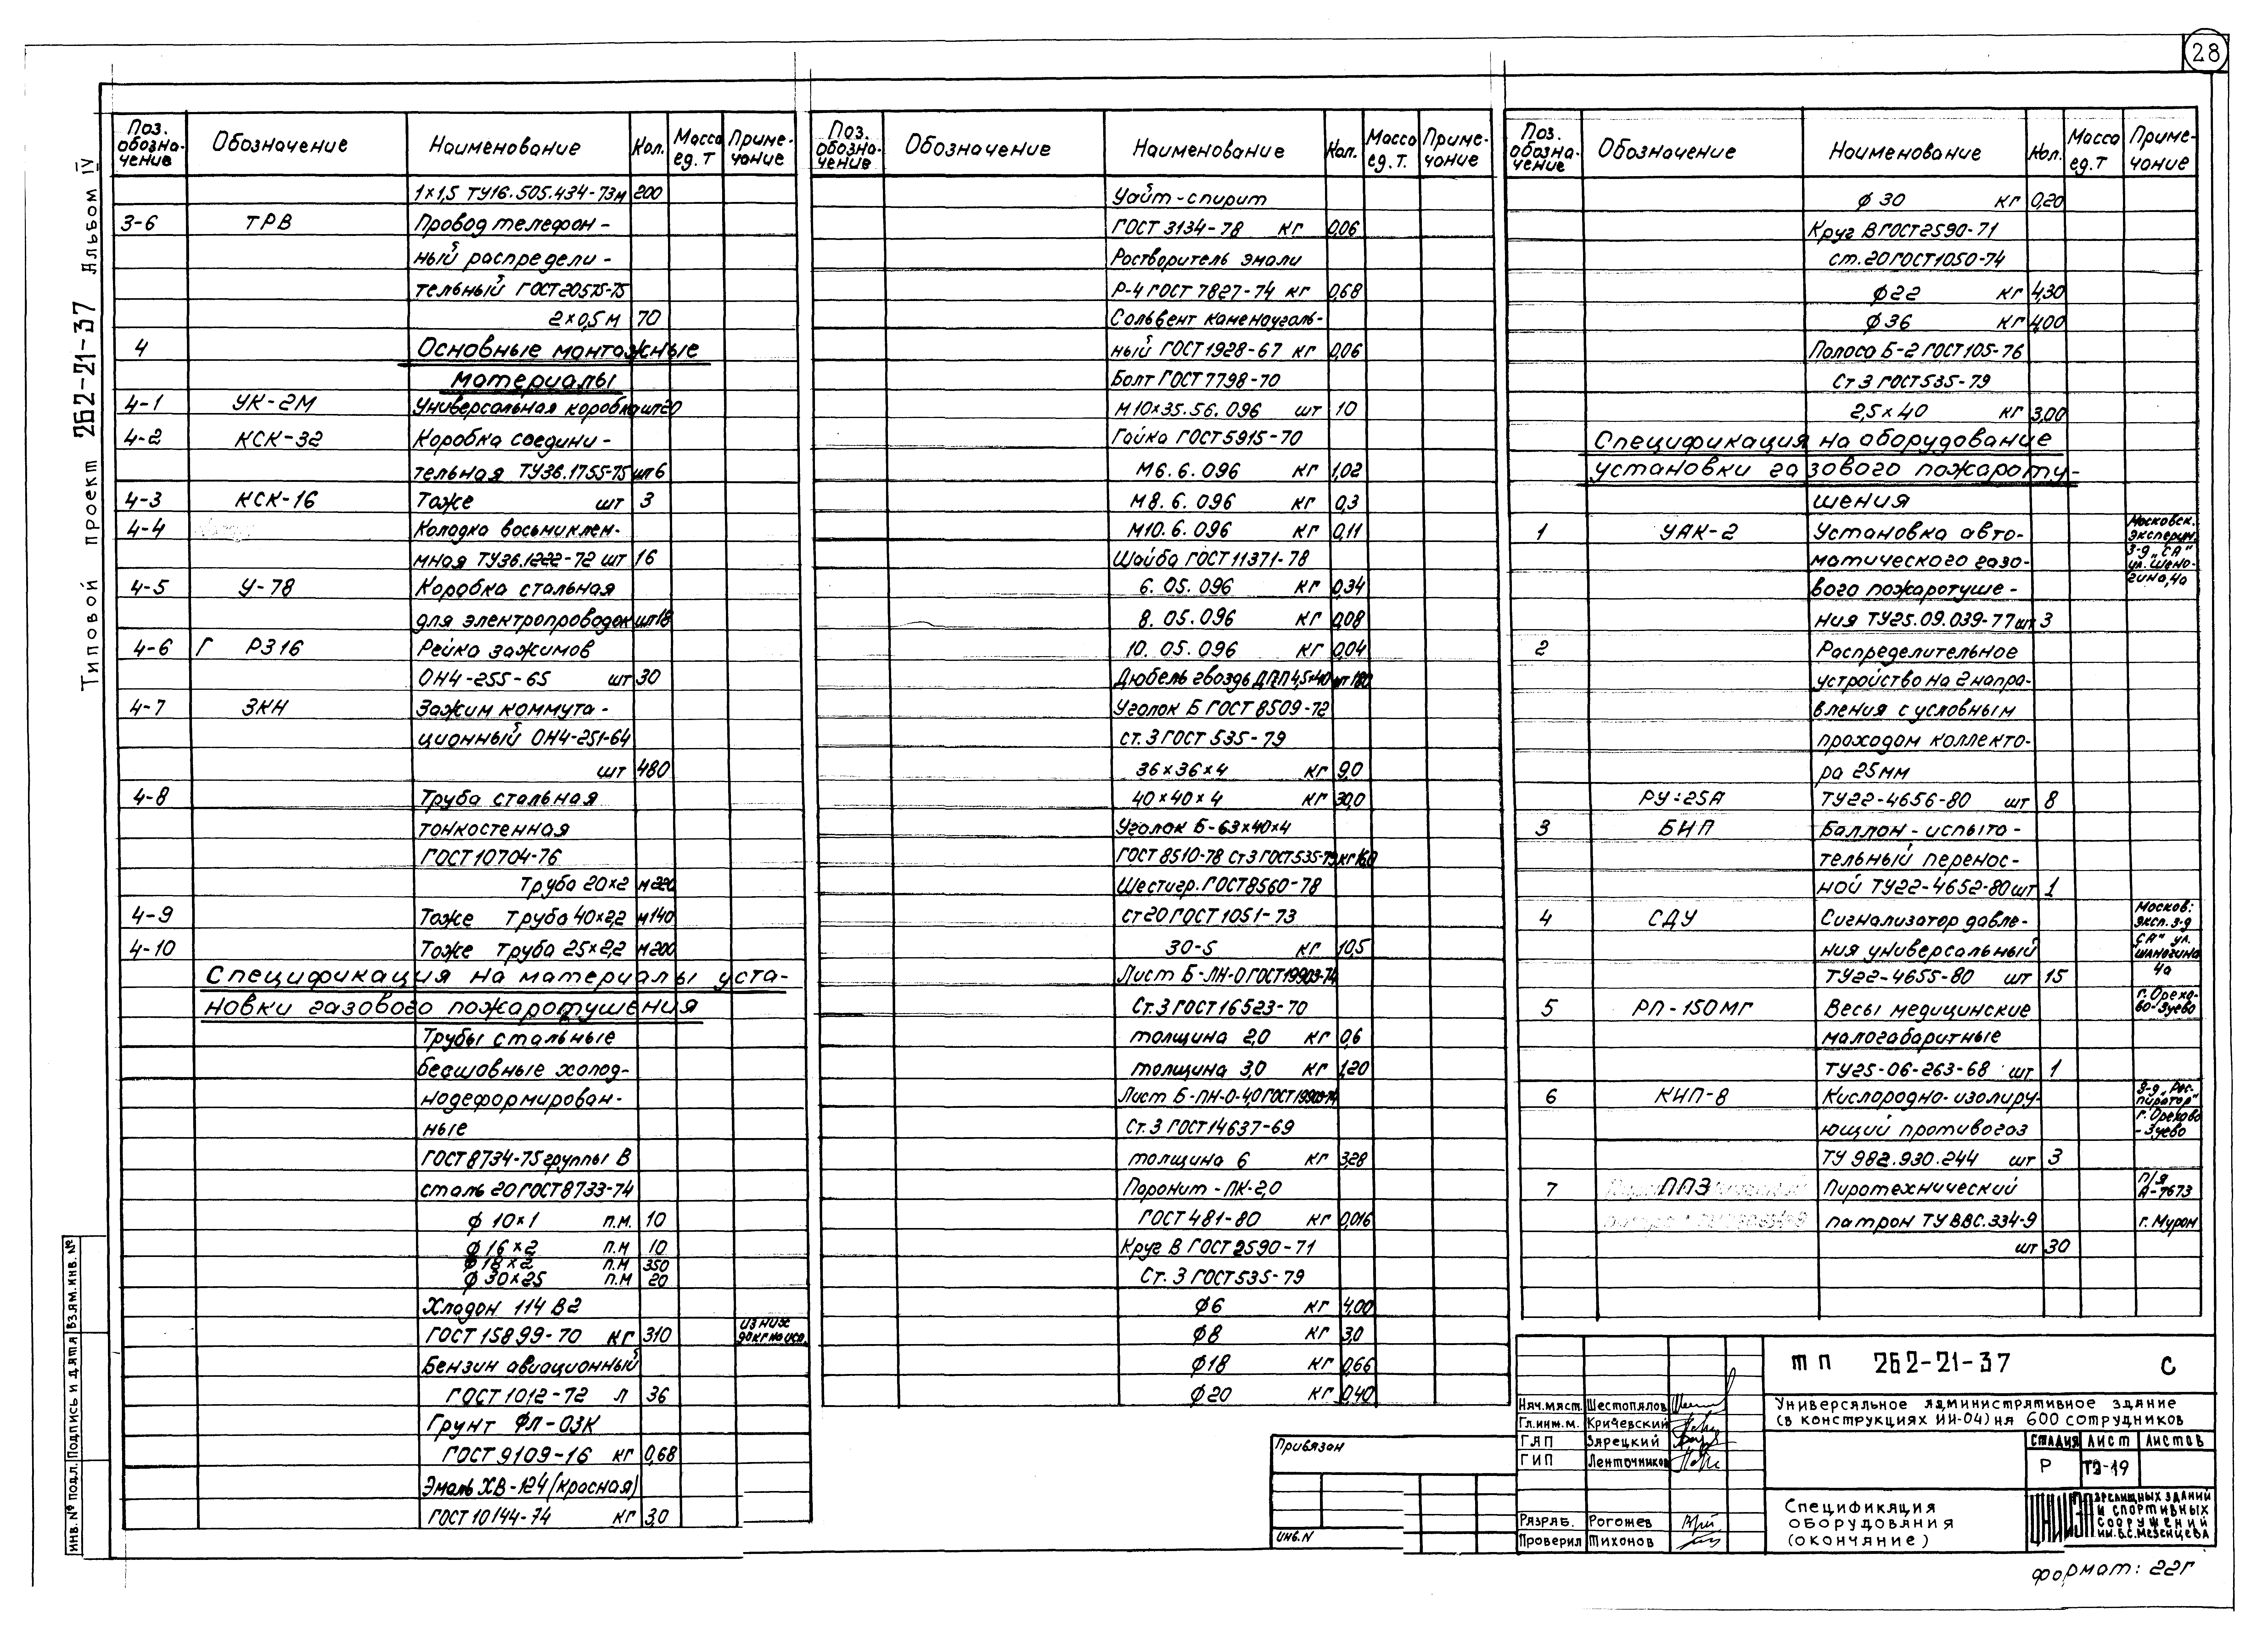 28
Типовой проект 262-21-37 Альбом IV
Поз. обозначение Обозначение Наименование Кол. Масса ед. т Примечание
1×1,5 ТУ16.505.434-73 м 200
3-6 ТРВ Провод телефон-
ный распредели-
тельный ГОСТ 20575-75
2×0,5 м 70
4 Основные монтажные
материалы
4-1 УК-2М Универсальная коробка шт 20
4-2 КСК-32 Коробка соедини-
тельная ТУ36.1755-75 шт 6
4-3 КСК-16 Тоже шт 3
4-4 Колодка восьмиклем-
мная ТУ36.1222-72 шт 16
4-5 У-78 Коробка стальная
для электропроводок шт 18
4-6 Г РЗ16 Рейка зажимов
ОН4-255-65 шт 30
4-7 ЗКН Зажим коммута-
ционный ОН4-251-64
шт 480
4-8 Труба стальная
тонкостенная
ГОСТ 10704-76
Труба 20×2 м 220
4-9 Тоже Труба 40×2,2 м 140
4-10 Тоже Труба 25×2,2 м 200
Спецификация на материалы уста-
новки газового пожаротушения
Трубы стальные
бесшовные холод-
нодеформирован-
ные
ГОСТ 8734-75 группы В
сталь 20 ГОСТ 8733-74
ф 10×1 п.м. 10
ф 16×2 п.м 10
ф 18×2 п.м 350
ф 30×25 п.м 20
Хладон 114 В2
ГОСТ 15899-70 кг 310 из них 90 кг на исп.
Бензин авиационный
ГОСТ 1012-72 л 36
Грунт ФЛ-03К
ГОСТ 9109-16 кг 0,68
Эмаль ХВ-124 (красная)
ГОСТ 10144-74 кг 3,0
Поз. обозначение Обозначение Наименование Кол. Масса ед. т. Примечание
Уайт-спирит
ГОСТ 3134-78 кг 0,06
Растворитель эмали
Р-4 ГОСТ 7827-74 кг 0,68
Сольвент каменоуголь-
ный ГОСТ 1928-67 кг 0,06
Болт ГОСТ 7798-70
М10×35.56.096 шт 10
Гайка ГОСТ 5915-70
М6.6.096 кг 1,02
М8.6.096 кг 0,3
М10.6.096 кг 0,11
Шайба ГОСТ 11371-78
6.05.096 кг 0,34
8.05.096 кг 0,08
10.05.096 кг 0,04
Дюбель гвоздь ДГП 4,5×40 шт 180
Уголок Б ГОСТ 8509-72
ст.3 ГОСТ 535-79
36×36×4 кг 9,0
40×40×4 кг 30,0
Уголок Б-63×40×4
ГОСТ 8510-78 Ст3 ГОСТ 535-79 кг 16,0
Шестигр. ГОСТ 8560-78
ст 20 ГОСТ 1051-73
30-5 кг 10,5
Лист Б-ПН-О ГОСТ 19903-74
Ст.3 ГОСТ 16523-70
толщина 2,0 кг 0,6
толщина 3,0 кг 1,20
Лист Б-ПН-О-4,0 ГОСТ 19903-74
Ст.3 ГОСТ 14637-69
толщина 6 кг 3,28
Паронит-ПК-2,0
ГОСТ 481-80 кг 0,016
Круг В ГОСТ 2590-71
Ст.3 ГОСТ 535-79
ф6 кг 4,00
ф8 кг 3,0
ф18 кг 0,66
ф20 кг 0,40
Поз. обозначение Обозначение Наименование Кол. Масса ед. т Примечание
ф 30 кг 0,20
Круг В ГОСТ 2590-71
ст. 20 ГОСТ 1050-74
ф22 кг 4,30
ф36 кг 4,00
Полоса Б-2 ГОСТ 105-76
Ст 3 ГОСТ 535-79
2,5×40 кг 3,00
Спецификация на оборудование
установки газового пожароту-
шения
1 УАК-2 Установка авто- Московск. эксперим.
матического газо- з-д „СА" ул. Шено-
вого пожаротуше- гина, 4а
ния ТУ25.09.039-77 шт 3
2 Распределительное
устройство на 2 напра-
вления с условным
проходом коллекто-
ра 25 мм
РУ-25А ТУ22-4656-80 шт 8
3 БИП Баллон-испыта-
тельный перенос-
ной ТУ22-4652-80 шт 1
4 СДУ Сигнализатор давле- Москов: эксп. з-д
ния универсальный „СА" ул. Шеногина
ТУ22-4655-80 шт 15 4а
5 РП-150МГ Весы медицинские г. Орехо-во-Зуево
малогабаритные
ТУ25-06-263-68 шт 1
6 КИП-8 Кислородно-изолиру- з-д „Рес-пиратор"
ющий противогаз г. Орехово-Зуево
ТУ 982.930.244 шт 3
7 ППЗ Пиротехнический п/я А-7673
патрон ТУ ВВС.334-9 г. Муром
шт 30
Привязан
инв. N
ТП 262-21-37 С
Универсальное административное здание
(в конструкциях ИИ-04) на 600 сотрудников
Нач.маст. Шестопалов
Гл.инж.м. Кричевский
ГАП Зарецкий
ГИП Ленточников
Разраб. Рогожев
Проверил Тихонов
Стадия Лист Листов
Р ТЭ-19
Спецификация
оборудования
(окончание)
ЦНИИЭП зрелищных зданий
и спортивных
сооружений
им. Б.С. Мезенцева
Формат: 22г
Инв. № подл. Подпись и дата Взам. инв. №